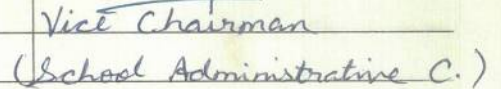 Vice Chairman
(School Administrative C.)